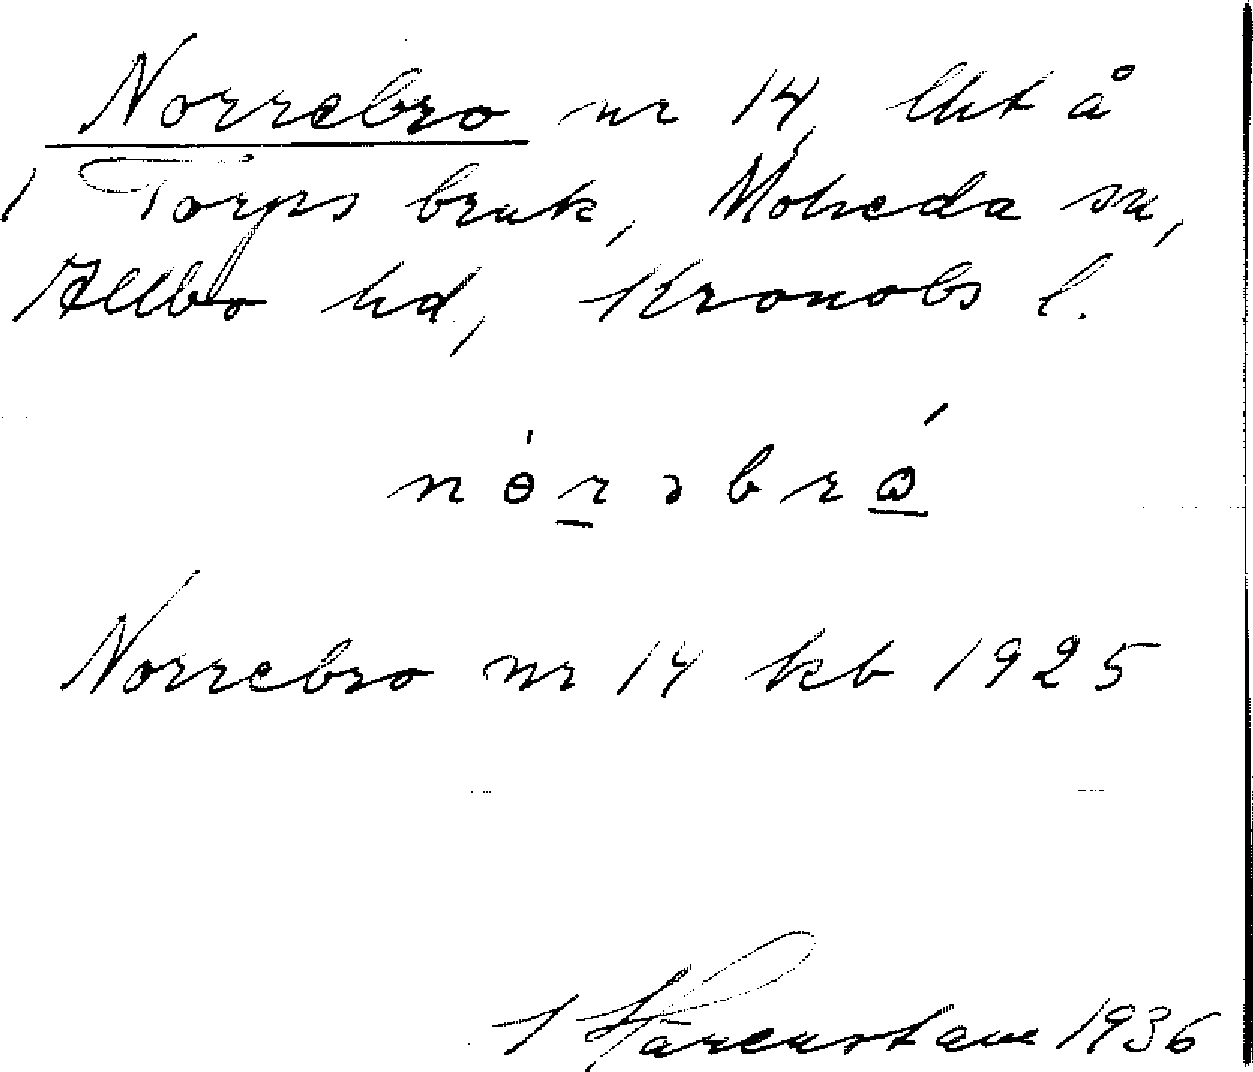 Norrebro nr 14, lht å
1 Torps bruk, Moheda sn,
Allbo hd, Kronobs l.
nɵ́rəbrɷ́
Norrebro nr 14 kb 1925
1936